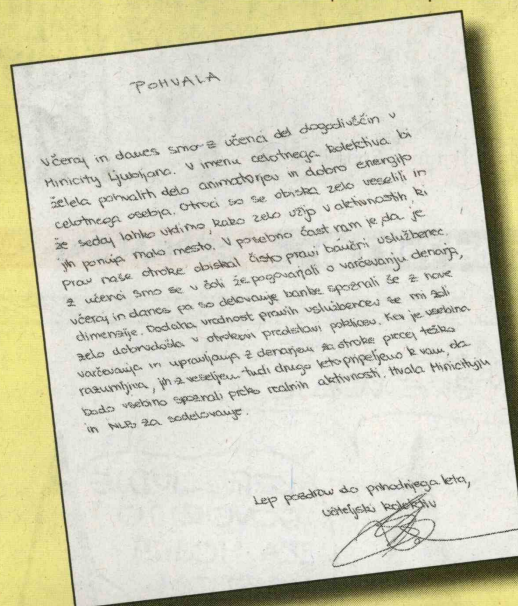 POHVALA
Včeraj in danes smo z učenci del dogodivščin v
Minicity Ljubljana. V imenu celotnega kolektiva bi
želela pohvaliti delo animatorjev in dobro energijo
celotnega osebja. Otroci so se obiska zelo veselili in
že sedaj lahko vidimo, kako zelo užijo v aktivnostih ki
jih ponuja malo mesto. V posebno čast nam je, da je
prav naše otroke obiskal čisto pravi bančni uslužbenec.
Z učenci smo se v šoli že pogovarjali o varčevanju denarja,
včeraj in danes pa so delovanje banke spoznali še z nove
dimenzije. Dodana vrednost pravih uslužbencev se mi zdi
zelo dobrodošla v otrokovi predstavi poklicev. Ker je vsebina
varčevanja in upravljanja z denarjem za otroke precej težko
razumljiva, jih z veseljem tudi drugo leto pripeljemo k vam, da
bodo vsebino spoznali preko realnih aktivnosti. Hvala Minicityju
in NLB za sodelovanje.
Lep pozdrav do prihodnjega leta,
učiteljski kolektiv